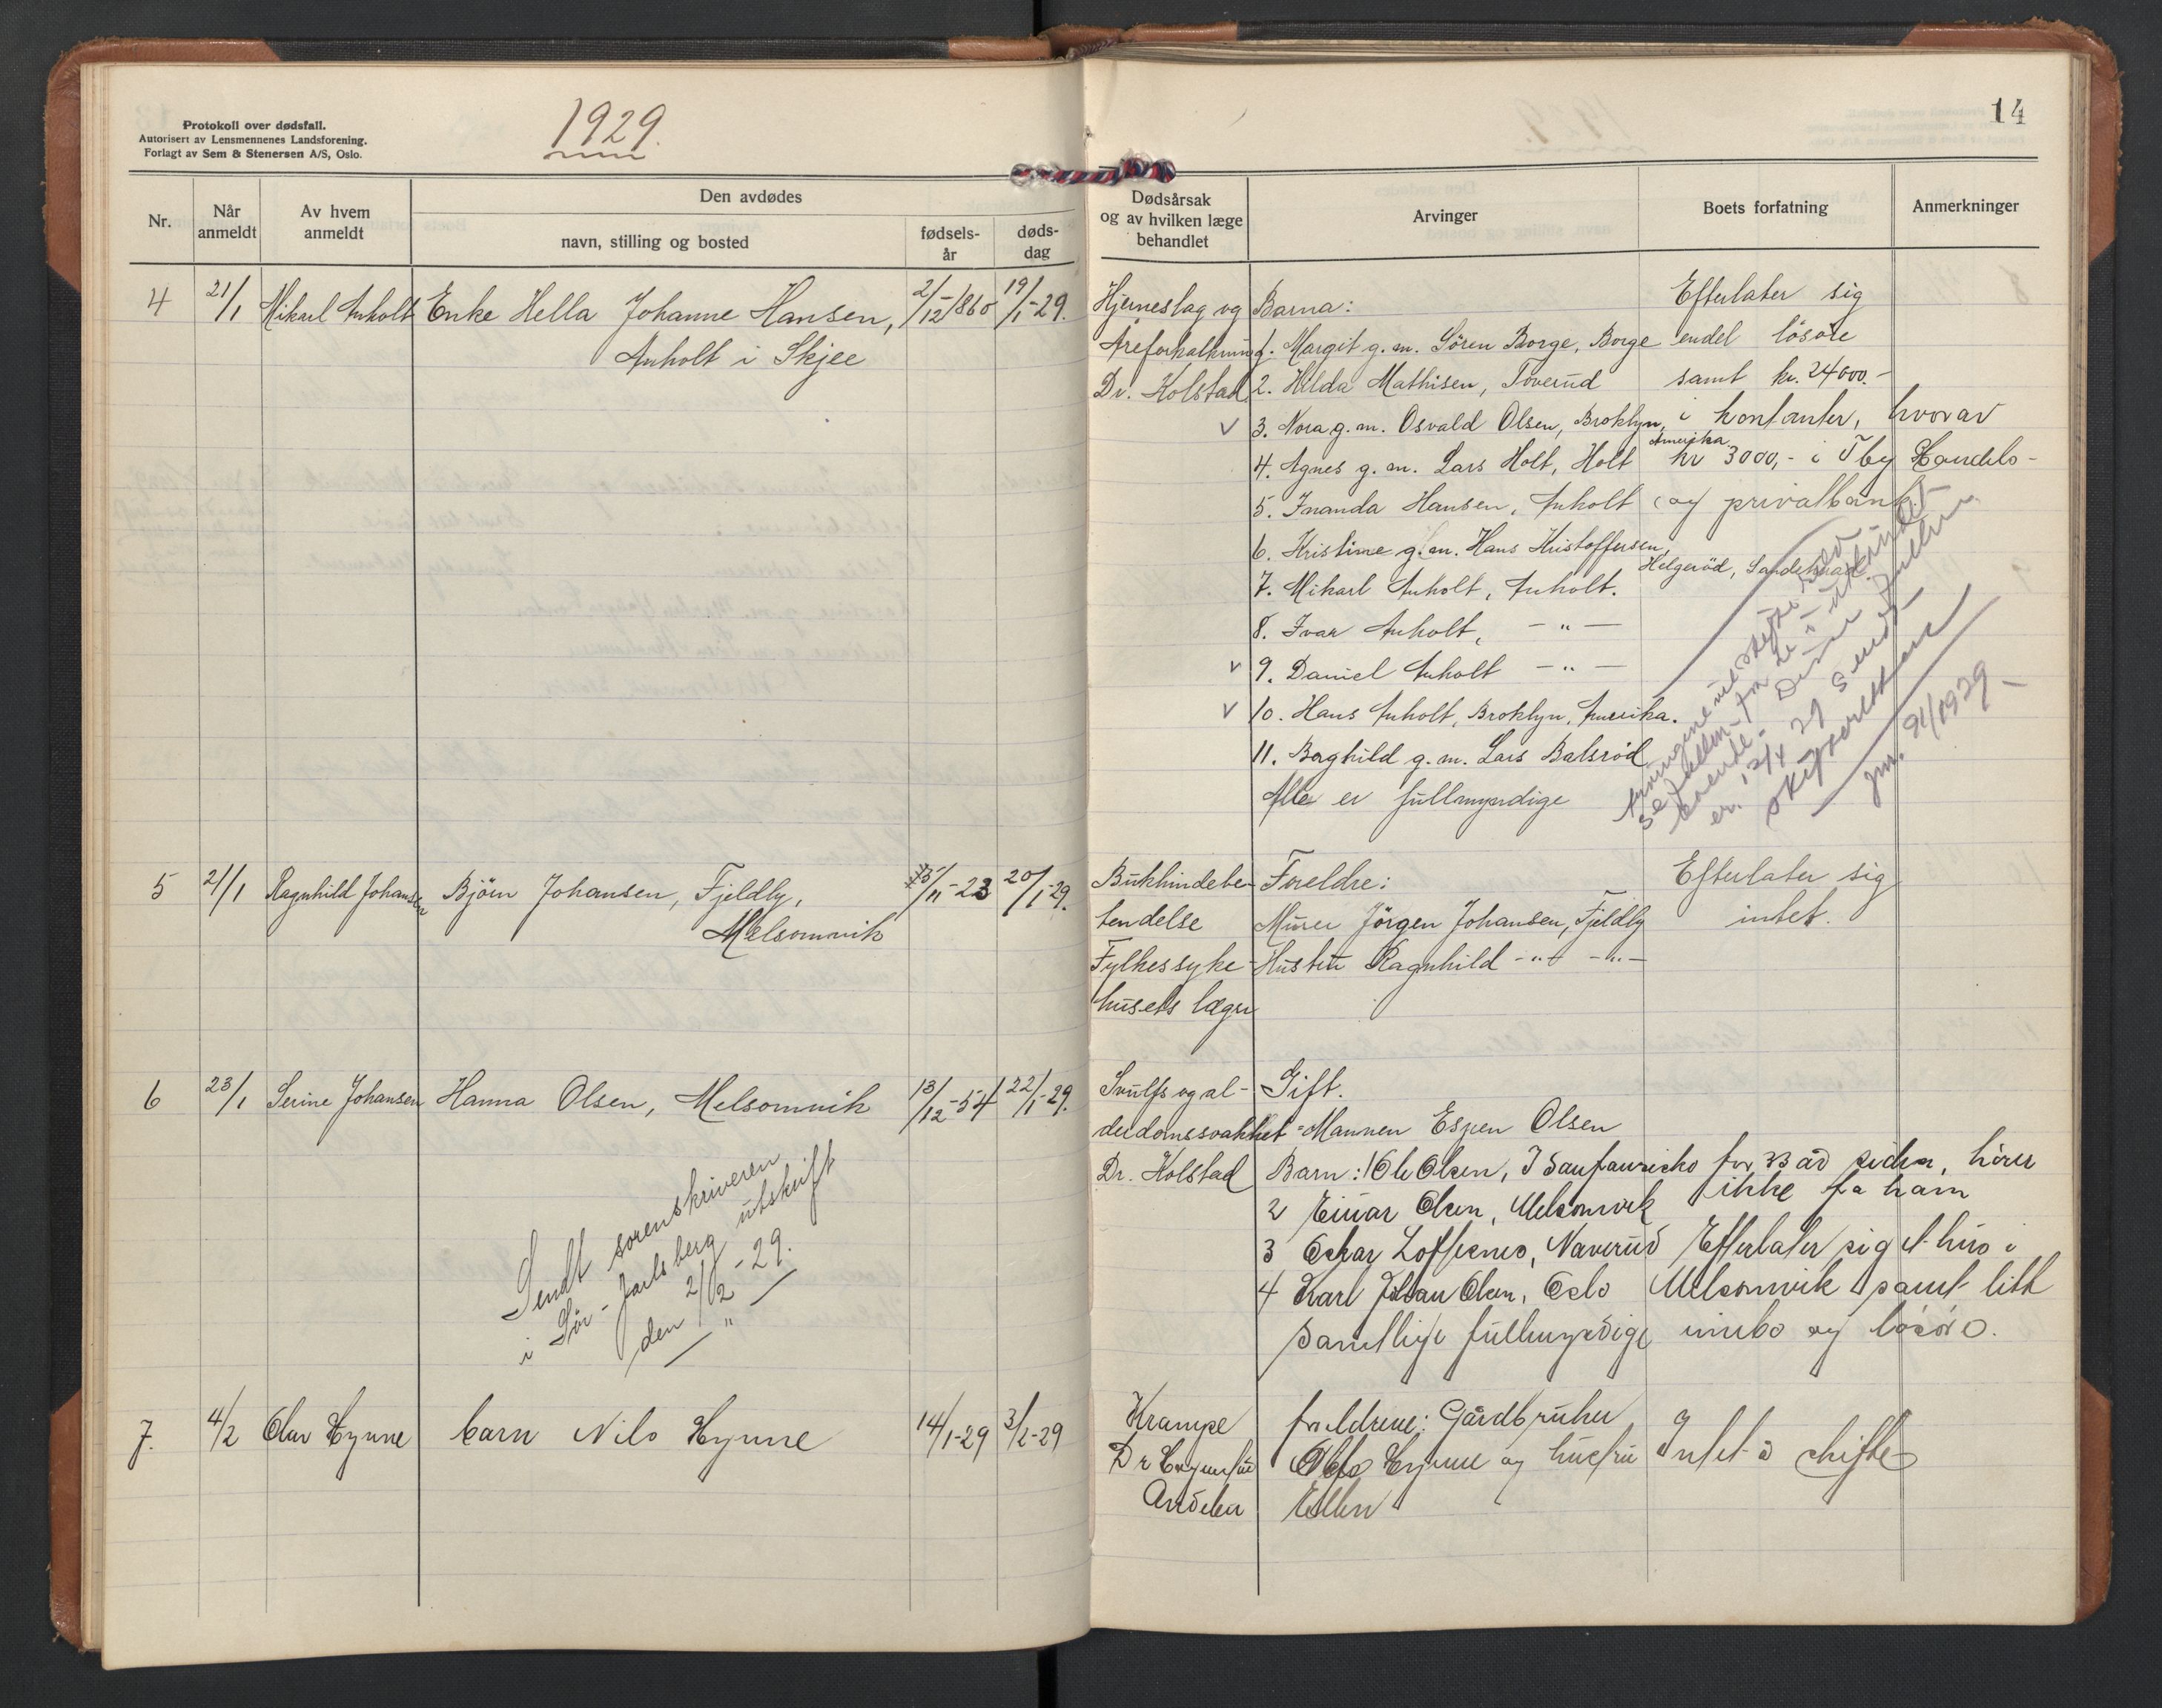 Protokoll over dødsfall.
Autorisert av Lensmennenes Landsforening.
Forlagt av Sem & Stenersen A/S, Oslo.
1929.
14
Nr.
Når anmeldt
Av hvem anmeldt
Den avdødes
navn, stilling og bosted
fødselsår
dødsdag
Dødsårsak og av hvilken læge behandlet
Arvinger
Boets forfatning
Anmerkninger
4 21/1 Mikael Anholt Enke Hella Johanne Hansen, 2/12-1860 19/1-29.
Anholt i Skjee
Hjerneslag og
Åreforkalkning
Dr. Kolstad
Barna:
1. Margit g.m. Sören Borge, Borge
2. Hilda Mathisen, Toverud
v 3. Nora g.m. Osvald Olsen, Broklyn, Amerika
4. Agnes g.m. Lars Holt, Holt
5. Inanda Hansen, Anholt
6. Kristine g.m. Hans Kristoffersen,
Helgeröd, Sandeherad
7. Mikael Anholt, Anholt.
8. Ivar Anholt, -"-
v 9. Daniel Anholt -"-
v 10. Hans Anholt, Broklyn, Amerika.
11. Borghild g.m. Lars Balsröd
Alle er fullmyndige
Efterlater sig
endel lösöre
samt kr. 24000.-
i kontanter, hvorav
kr 3000,- i Tbg Handels-
og privatbank
12/4 29 sendt
skifteretten
jnr. 91/1929
5 21/1 Ragnhild Johansen Björn Johansen, Fjeldly, /11-23 20/1-29.
Melsomvik
Bukhindebe-
tendelse
Fylkessyke-
husets læger
Foreldre:
Murer Jörgen Johansen, Fjeldly
Hustru Ragnhild -"- -"-
Efterlater sig
intet.
6 23/1 Serine Johansen Hanna Olsen, Melsomvik 13/12-54 22/1-29.
Svulst og al-
derdomssvakhet
Dr. Kolstad
Gift.
Mannen Espen Olsen
Barn: 1 Ole Olsen, I Sanfransisko for 33 år siden, hörer
ikke fra ham
2 Einar Olsen, Melsomvik
3 Oskar Loffsnes, Naverud
4 Karl Johan Olsen, Oslo
Samtlige fullmyndige
Efterlater sig et hus i
Melsomvik samt litt
innbo og lösöre.
Sendt sorenskriveren
i Sör-Jarlsberg utskrift
den 2/2-29.
"
7. 4/2 Olav Hynne barn Nils Hynne 14/1-29 3/2-29
Krampe
Dr
Andebu
foreldrene: Gårdbruker
Hynne og husfru
Ellen
Intet å skifte